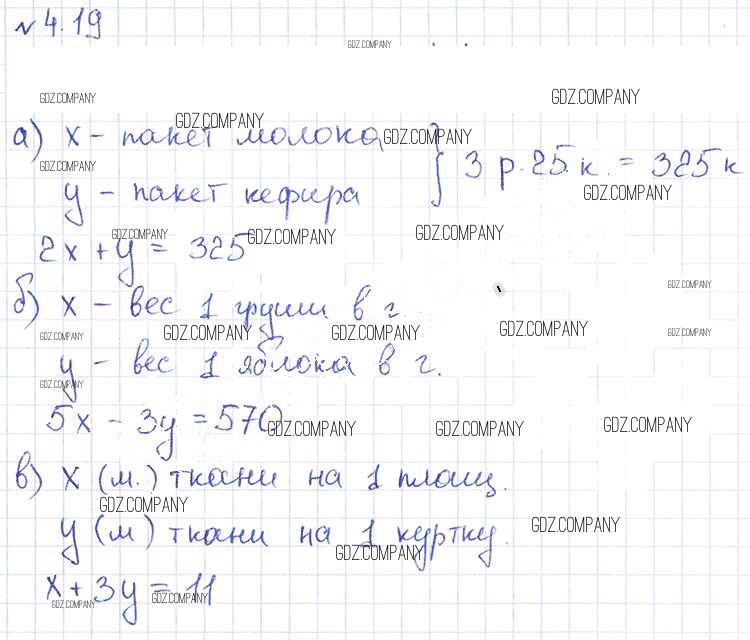 № 4.19
GDZ.COMPANY
GDZ.COMPANY
GDZ.COMPANY
GDZ.COMPANY
а) x - пакет молока
GDZ.COMPANY
3 р. 25 к. = 325 к
GDZ.COMPANY
y - пакет кефира
GDZ.COMPANY
GDZ.COMPANY
GDZ.COMPANY
GDZ.COMPANY
2x + y = 325
GDZ.COMPANY
б) x - вес 1 груши в г.
GDZ.COMPANY
GDZ.COMPANY
GDZ.COMPANY
GDZ.COMPANY
GDZ.COMPANY
y - вес 1 яблока в г.
GDZ.COMPANY
5x - 3y = 570
GDZ.COMPANY
GDZ.COMPANY
GDZ.COMPANY
в) x (м.) ткани на 1 плащ.
GDZ.COMPANY
y (м) ткани на 1 куртку.
GDZ.COMPANY
GDZ.COMPANY
x + 3y = 11
GDZ.COMPANY
GDZ.COMPANY